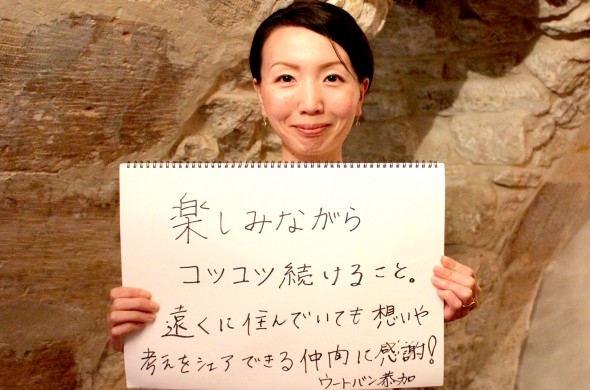 楽しみながら
コツコツ続けること。
遠くに住んでいても想いや
考えをシェアできる仲間に感謝!
ウートバン恭加